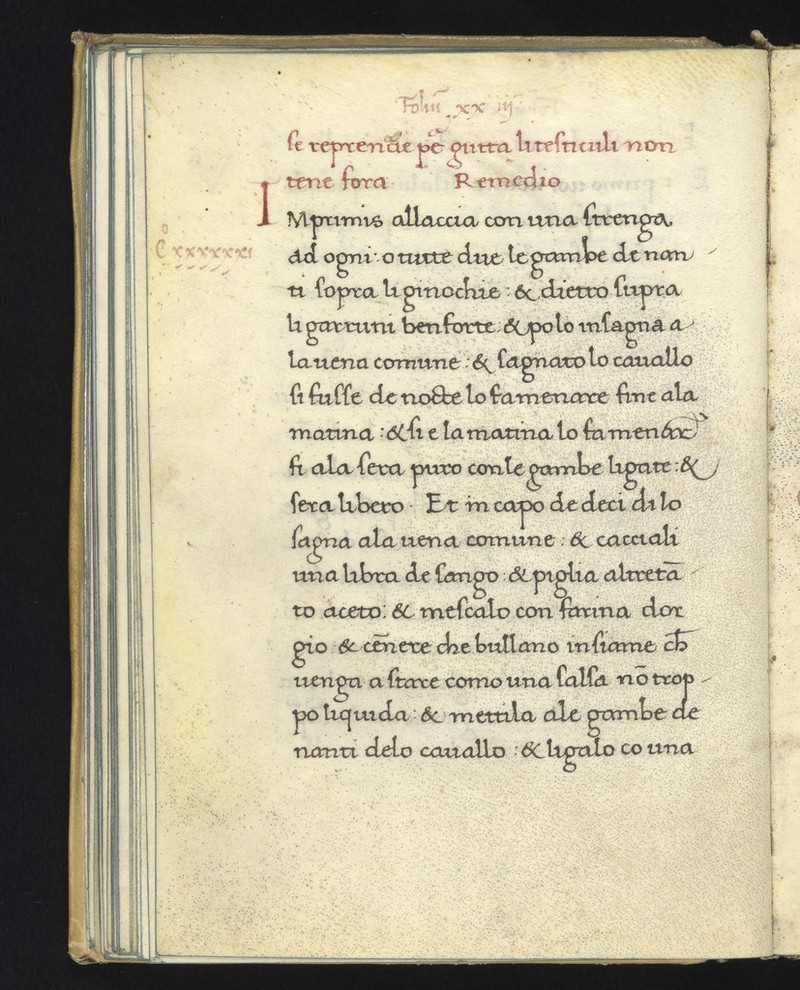 Foliũ xx iij
se reprende pẽ gutta li testiculi non
tene fora. Remedio
C° xxxxxxi
IMprimis allaccia con una strenga
ad ogni: o tutte due le gambe de nan
ti sopra li ginochie: & dietro supra
li garruni ben forte: & polo insagna a
la uena comune: & sagnato lo cauallo
si fusse de nocte lo fa menare fine ala
matina: & si e la matina lo fa menare
fi ala sera puro con le gambe ligate: &
sera libero. Et in capo de deci di lo
sagna ala uena comune: & cacciali
una libra de sango: & piglia altretã
to aceto: & mescalo con farina dor
gio & cẽnere che bullano insiame cħ
uenga a stare como una salsa nõ trop
po liquida: & mettila ale gambe de
nanti delo cauallo: & ligalo co una